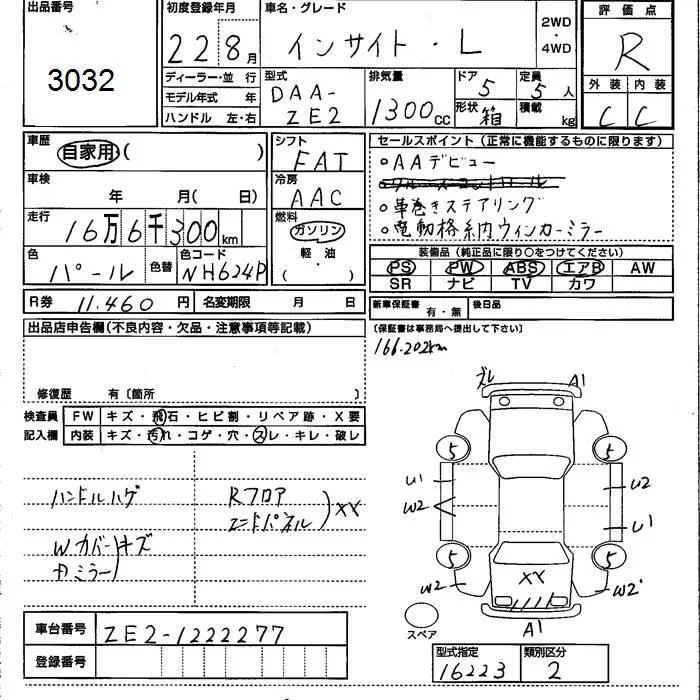 出品番号
3032
初度登録年月
22 8月
車名・グレード
インサイト・L
2WD
・
4WD
評価点
R
外装 内装
C C
ディーラー・並 行
モデル年式 年
ハンドル 左・右
型式
DAA-
ZE2
排気量
1300cc
ドア 5
形状 箱
定員 5人
積載 kg
車歴
自家用 ( )
車検
年 月( 日)
走行
16万6千300km
色
パール
色替
色コード
NH624P
シフト
FAT
冷房
AAC
燃料
ガソリン
( 軽・油 )
セールスポイント(正常に機能するものに限ります)
○AAデビュー
○革巻きステアリング
○電動格納ウィンカーミラー
装備品(純正品に限り○をつけてください)
PS PW ABS エアB AW
SR ナビ TV カワ
R券 11.460 円 名変期限 月 日
新車保証書 有・無 後日品
(保証書は事務局へ提出して下さい)
出品店申告欄(不良内容・欠品・注意事項等記載)
166.202km
修復歴 有〔箇所 〕
検査員
記入欄
FW キズ・飛石・ヒビ割・リペア跡・X要
内装 キズ・汚れ・コゲ・穴・スレ・キレ・破レ
ハンドルハゲ
Rフロア
エンドパネル
)XX
Wカバーキズ
ミラー
ズレ A1
5 5
U1 U2
W2 U1
5 5
W2 XX W2
A1
スペア
車台番号 ZE2-1222277
登録番号
型式指定 類別区分
16223 2